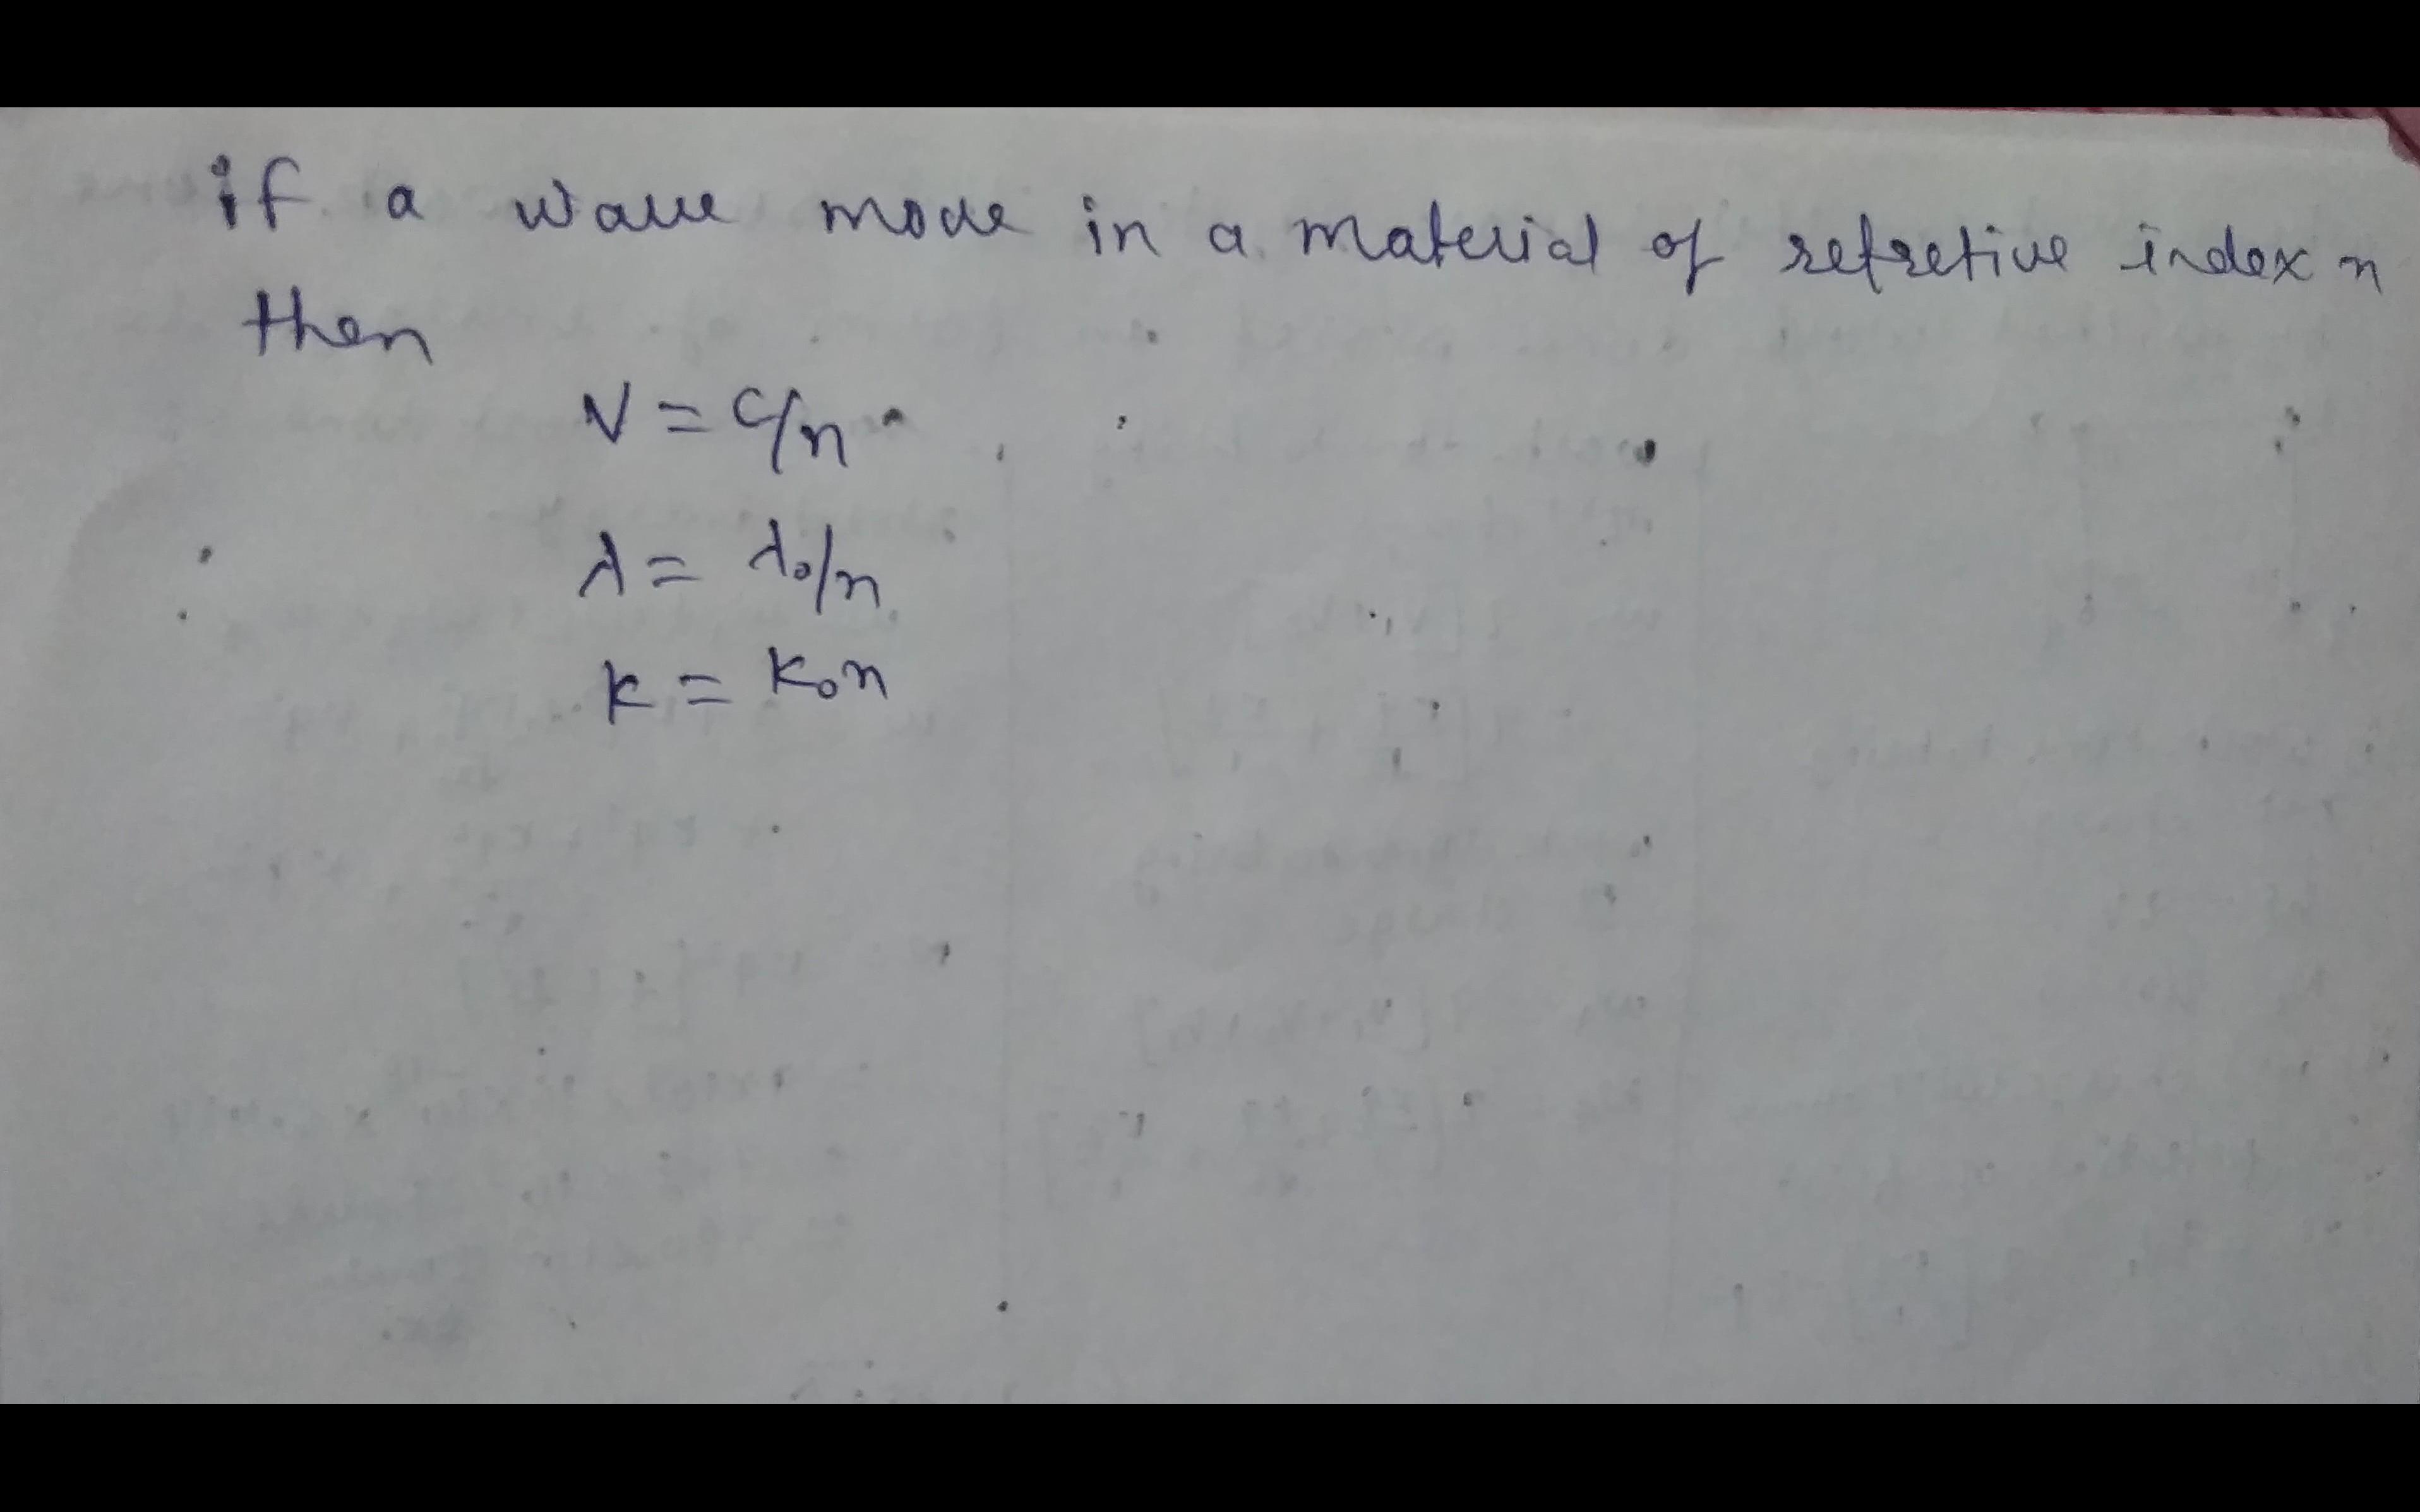 if a wave move in a material of refretive index n
then
V = c/n
λ = λ₀/n
K = K₀n